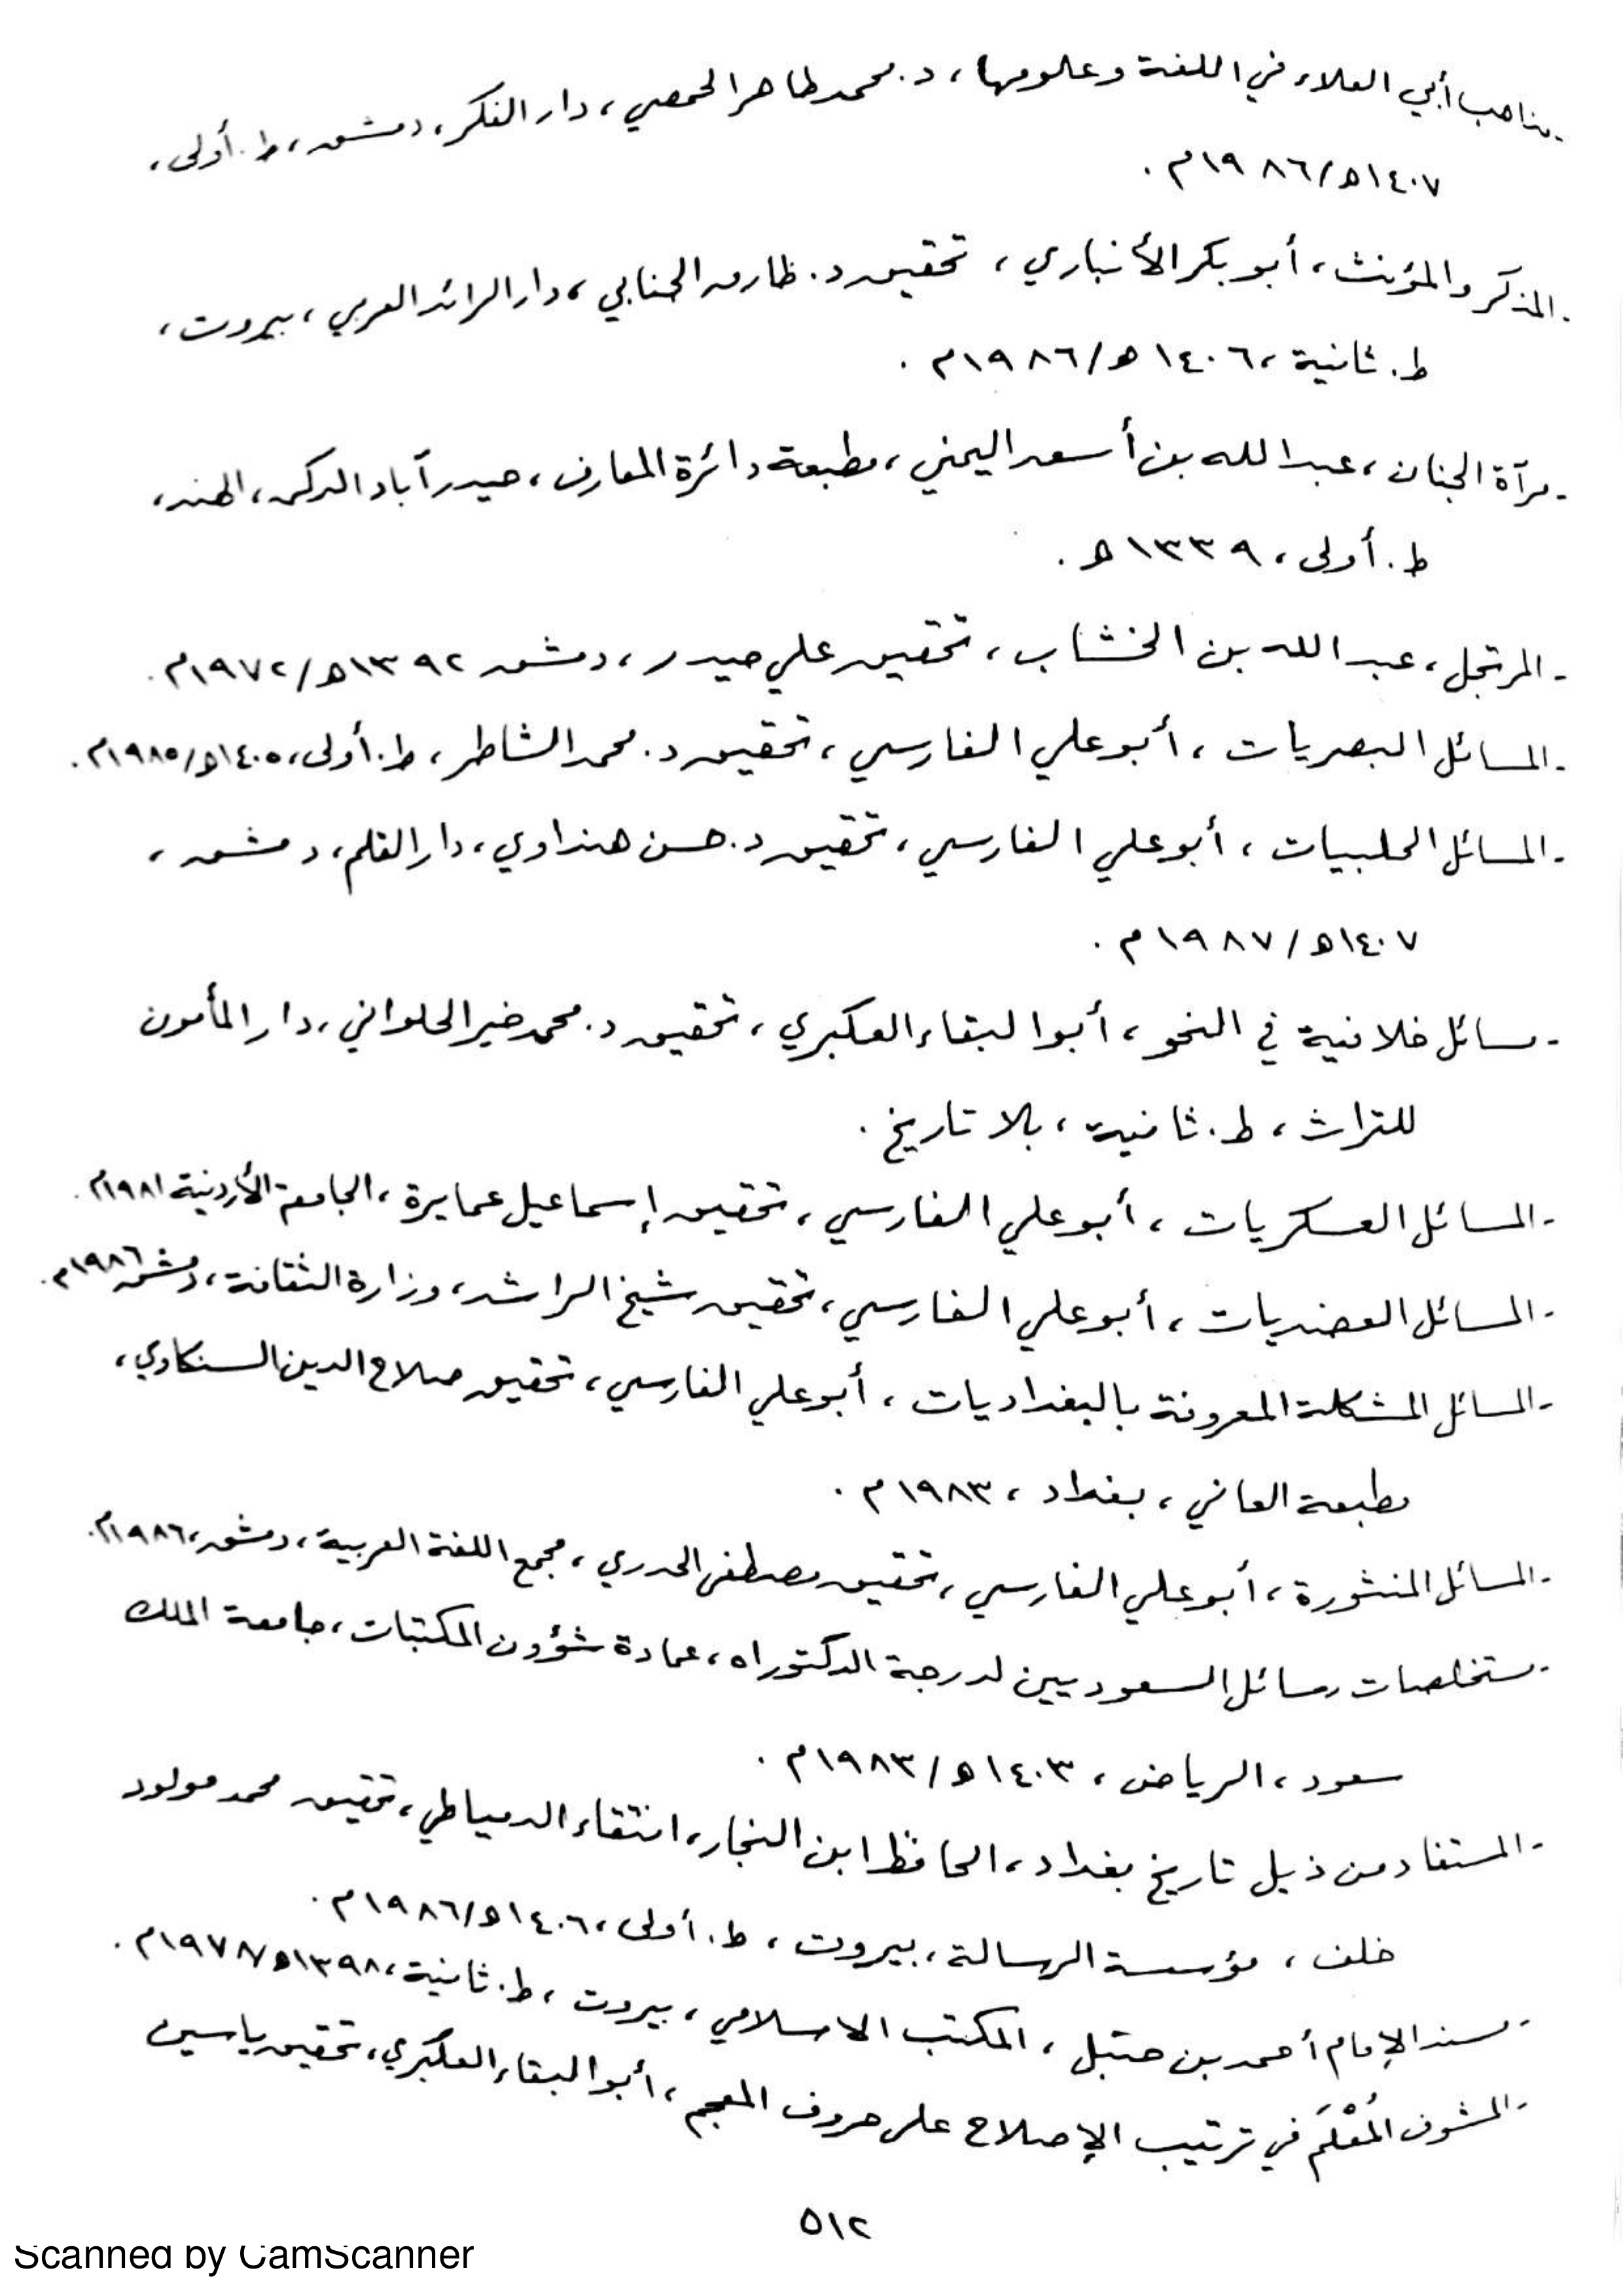 - مذاهب أبي العلاء في اللغة وعلومها، د. محمد طاهر الحمصي، دار الفكر، دمشق، ط. أولى،
١٤٠٧هـ/١٩٨٦م.
- المذكر والمؤنث، أبو بكر الأنباري، تحقيق د. طارق الجنابي، دار الرائد العربي، بيروت،
ط. ثانية، ١٤٠٦هـ/١٩٨٦م.
- مرآة الجنان، عبد الله بن أسعد اليمني، مطبعة دائرة المعارف، حيدر آباد الدكن، الهند،
ط. أولى، ١٣٣٩هـ.
- المرتجل، عبد الله بن الخشاب، تحقيق علي حيدر، دمشق ١٣٩٢هـ/١٩٧٢م.
- المسائل البصريات، أبو علي الفارسي، تحقيق د. محمد الشاطر، ط. أولى، ١٤٠٥هـ/١٩٨٥م.
- المسائل الحلبيات، أبو علي الفارسي، تحقيق د. حسن هنداوي، دار القلم، دمشق،
١٤٠٧هـ/١٩٨٧م.
- مسائل خلافية في النحو، أبو البقاء العكبري، تحقيق د. محمد خير الحلواني، دار المأمون
للتراث، ط. ثانية، بلا تاريخ.
- المسائل العسكريات، أبو علي الفارسي، تحقيق إسماعيل عمايرة، الجامعة الأردنية ١٩٨١م.
- المسائل العضديات، أبو علي الفارسي، تحقيق شيخ الراشد، وزارة الثقافة، دمشق ١٩٨٦م.
- المسائل المشكلة المعروفة بالبغداديات، أبو علي الفارسي، تحقيق صلاح الدين السنكاوي،
مطبعة العاني، بغداد، ١٩٨٣م.
- المسائل المنثورة، أبو علي الفارسي، تحقيق مصطفى الحدري، مجمع اللغة العربية، دمشق، ١٩٨٦م.
- مستخلصات رسائل السعوديين لدرجة الدكتوراه، عمادة شؤون المكتبات، جامعة الملك
سعود، الرياض، ١٤٠٣هـ/١٩٨٣م.
- المستفاد من ذيل تاريخ بغداد، الحافظ ابن النجار، انتقاء الدمياطي، تحقيق محمد مولود
خلف، مؤسسة الرسالة، بيروت، ط. أولى، ١٤٠٦هـ/١٩٨٦م.
- مسند الإمام أحمد بن حنبل، المكتب الاسلامي، بيروت، ط. ثانية، ١٣٩٨هـ/١٩٧٨م.
- المشوف المُعْلَم في ترتيب الإصلاح على حروف المعجم، أبو البقاء العكبري، تحقيق ياسين
٥١٢
Scanned by CamScanner